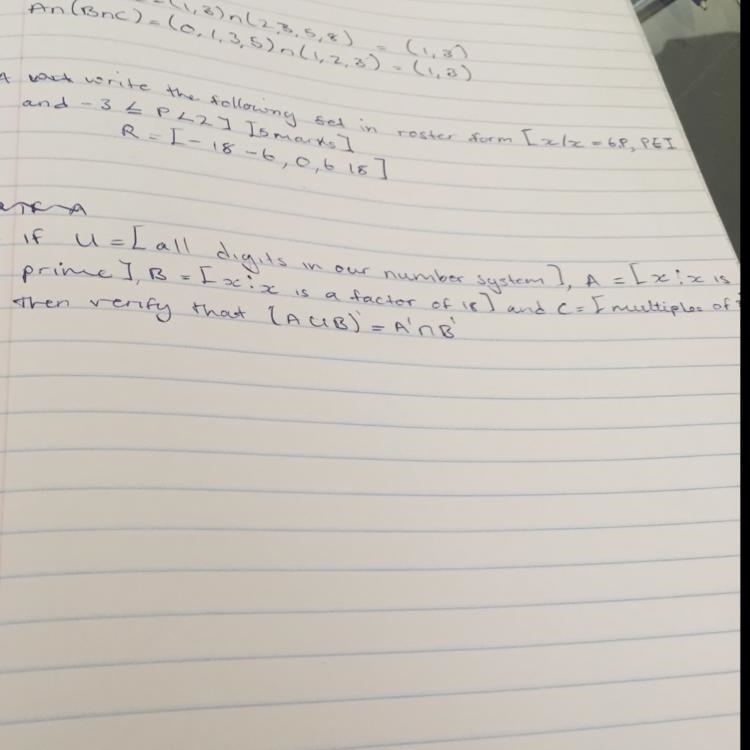 = (1,3)n(2,3,5,8) = (1,3)
An(BnC) = (0,1,3,5)n(1,2,3) = (1,3)
write the following set in roster form [x/x = 6P, PEI
and -3 ≤ P < 2] [5 marks]
R = [-18 -6, 0, 6 18]
if U = [all digits in our number system], A = [x:x is
prime], B = [x:x is a factor of 18] and C = [multiples of
then verify that (AUB)' = A'∩B'